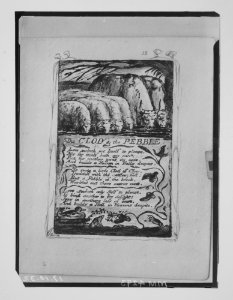 The CLOD & the PEBBLE
Love seeketh not Itself to please,
Nor for itself hath any care;
But for another gives its ease,
And builds a Heaven in Hells despair.
So sang a little Clod of Clay,
Trodden with the cattles feet:
But a Pebble of the brook,
Warbled out these metres meet.
Love seeketh only Self to please,
To bind another to its delight:
Joys in anothers loss of ease,
And builds a Hell in Heavens despite.